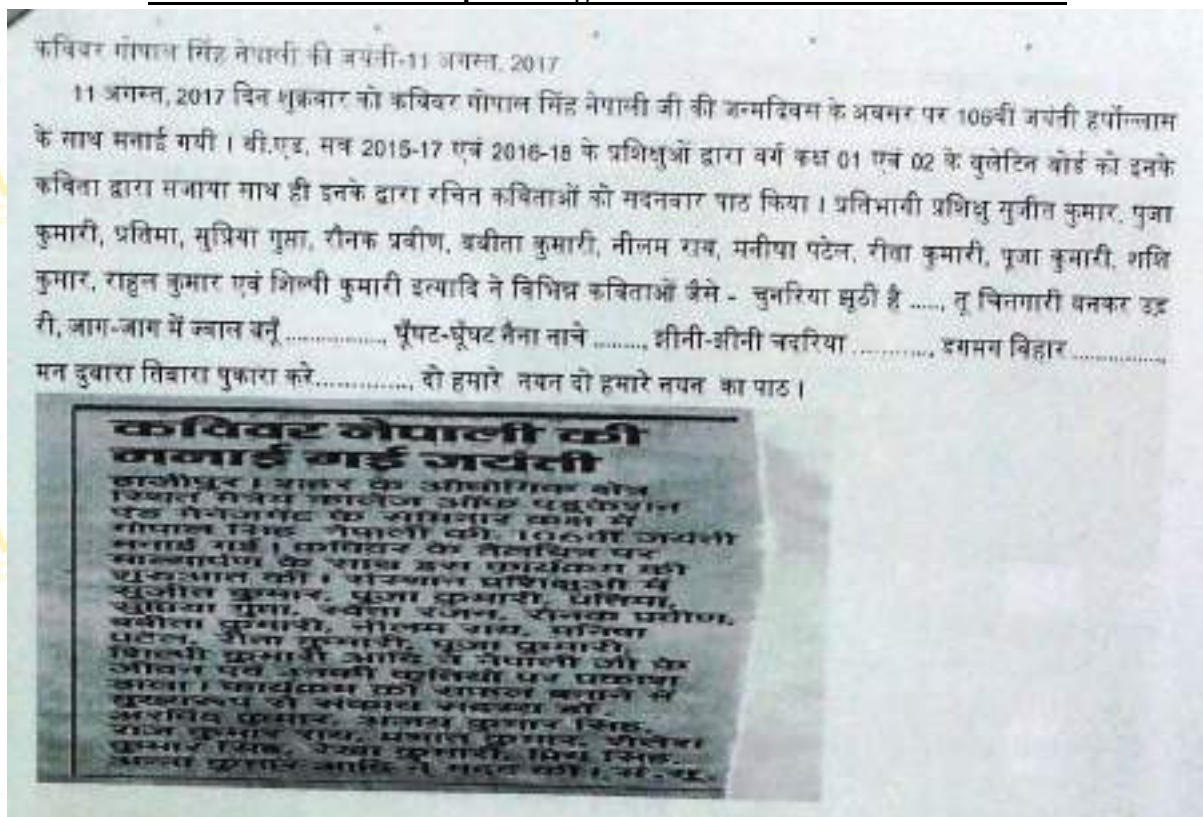 कविवर गोपाल सिंह नेपाली की जयंती-11 अगस्त, 2017
11 अगस्त, 2017 दिन शुक्रवार को कविवर गोपाल सिंह नेपाली जी की जन्मदिवस के अवसर पर 106वी जयंती हर्षोल्लास
के साथ मनाई गयी । बी.एड. सत्र 2015-17 एवं 2016-18 के प्रशिक्षुओं द्वारा वर्ग कक्ष 01 एवं 02 के बुलेटिन बोर्ड को इनके
कविता द्वारा सजाया साथ ही इनके द्वारा रचित कविताओं को सदनवार पाठ किया । प्रतिभागी प्रशिक्षु सुजीत कुमार, पुजा
कुमारी, प्रतिमा, सुप्रिया गुप्ता, रौनक प्रवीण, बबीता कुमारी, नीलम राय, मनीषा पटेल, रीता कुमारी, पूजा कुमारी, शशि
कुमार, राहुल कुमार एवं शिल्पी कुमारी इत्यादि ने विभिन्न कविताओं जैसे - चुनरिया झूठी है ....., तू चिनगारी बनकर उड़
री, जाग-जाग में ज्वाल बनूँ ..............., घूँघट-घूँघट नैना नाचे ........, झीनी-झीनी चदरिया ..........., डगमग बिहार ..............,
मन दुबारा तिबारा पुकारा करे.............., दो हमारे नयन दो हमारे नयन का पाठ ।
कविवर नेपाली की
मनाई गई जयंती
हाजीपुर । शहर के औद्योगिक क्षेत्र
स्थित मैत्रेय कालेज ऑफ एडुकेशन
एंड मैनेजमेंट के सेमिनार कक्ष में
गोपाल सिंह नेपाली की 106वीं जयंती
मनाई गई । कविवर के तैलचित्र पर
माल्यार्पण के साथ इस कार्यक्रम की
शुरुआत की । संस्थान प्रशिक्षुओं में
सुजीत कुमार, पूजा कुमारी, प्रतिमा,
सुप्रिया गुप्ता, श्वेता रंजन, रौनक प्रवीण,
बबीता कुमारी, नीलम राय, मनिषा
पटेल, रीता कुमारी, पूजा कुमारी,
शिल्पी कुमारी आदि ने नेपाली जी के
जीवन एवं उनकी कृतियों पर प्रकाश
डाला । कार्यक्रम को सफल बनाने में
मुख्यरूप से संकाय सदस्य डॉ.
अरविंद कुमार, अजय कुमार सिंह,
राज कुमार राय, प्रशांत कुमार,
कुमार सिंह, रेखा कुमारी, सिंह,
कुमार आदि ने मदद की ।